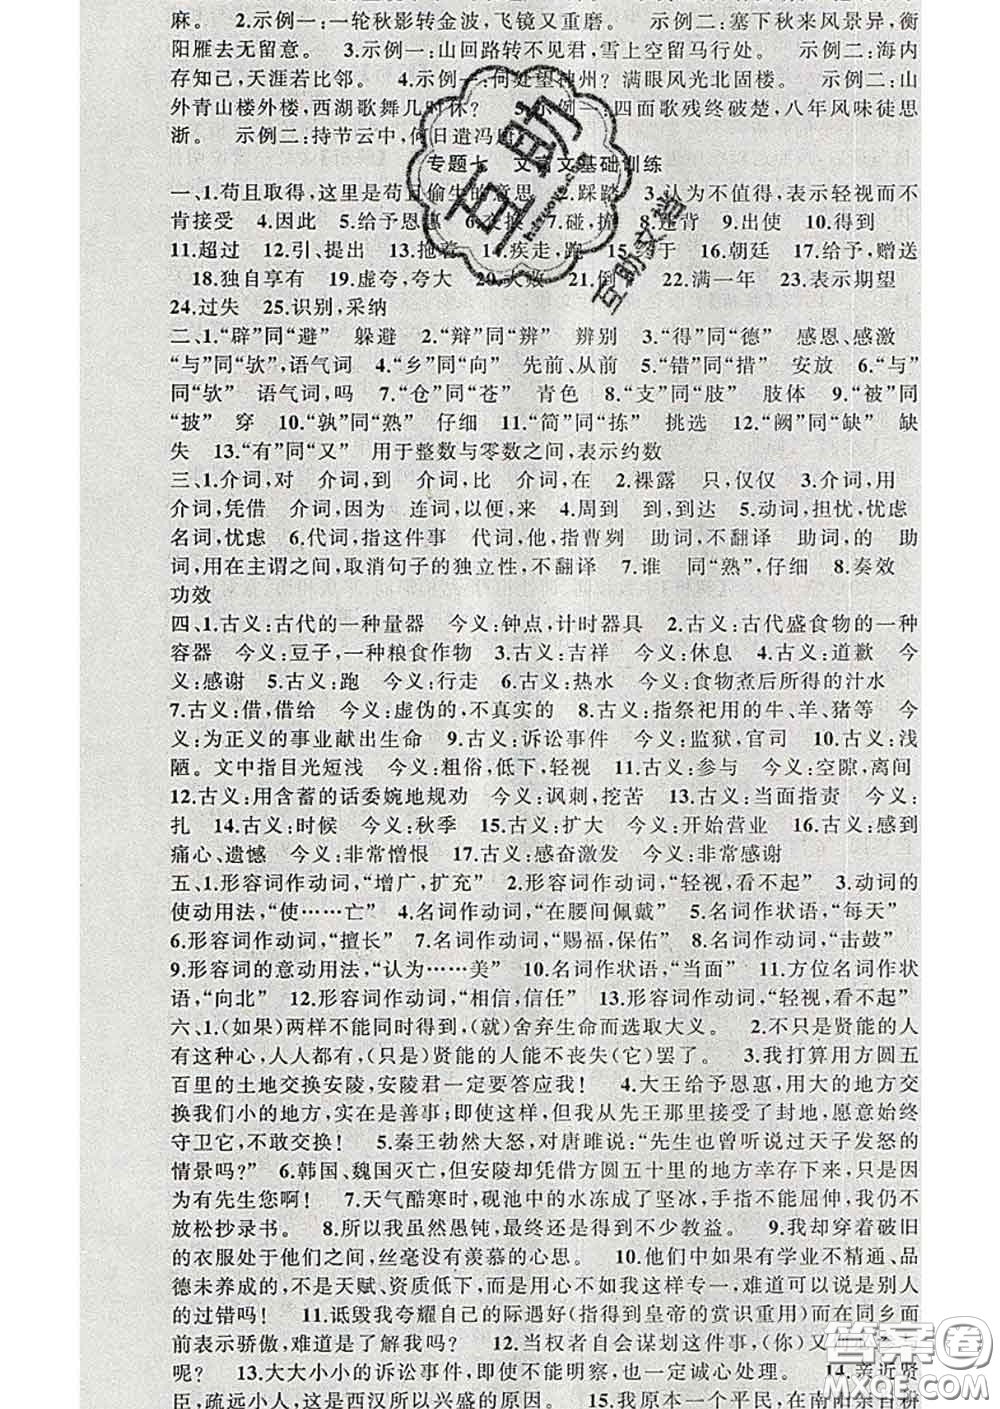 麻。　2.示例一:一轮秋影转金波,飞镜又重磨。　示例二:塞下秋来风景异,衡
阳雁去无留意。　3.示例一:山回路转不见君,雪上空留马行处。　示例二:海内
存知己,天涯若比邻。　4.示例一:何处望神州？满眼风光北固楼。　示例二:山
外青山楼外楼,西湖歌舞几时休？　5.示例一:四面歌残终破楚,八年风味徒思
浙。　示例二:持节云中,何日遣冯唐？
专题七　文言文基础训练
一、1.苟且取得,这里是苟且偷生的意思　2.踩踏　3.认为不值得,表示轻视而不
肯接受　4.因此　5.给予恩惠　6.交换　7.碰,撞　8.违背　9.出使　10.得到
11.超过　12.引、提出　13.拖着　14.疾走,跑　15.终于　16.朝廷　17.给予,赠送
18.独自享有　19.虚夸,夸大　20.大败　21.倒下　22.满一年　23.表示期望
24.过失　25.识别,采纳
二、1.“辟”同“避”　躲避　2.“辩”同“辨”　辨别　3.“得”同“德”　感恩、感激
“与”同“欤”,语气词　4.“乡”同“向”　先前、从前　5.“错”同“措”　安放　6.“与”
同“欤”　语气词,吗　7.“仓”同“苍”　青色　8.“支”同“肢”　肢体　9.“被”同
“披”　穿　10.“孰”同“熟”　仔细　11.“简”同“拣”　挑选　12.“阙”同“缺”　缺
失　13.“有”同“又”　用于整数与零数之间,表示约数
三、1.介词,对　介词,到　介词,比　介词,在　2.裸露　只,仅仅　3.介词,用
介词,凭借　介词,因为　连词,以便,来　4.周到　到,到达　5.动词,担忧,忧虑
名词,忧虑　6.代词,指这件事　代词,他,指曹刿　助词,不翻译　助词,的　助
词,用在主谓之间,取消句子的独立性,不翻译　7.谁　同“熟”,仔细　8.奏效
功效
四、1.古义:古代的一种量器　今义:钟点,计时器具　2.古义:古代盛食物的一种
容器　今义:豆子,一种粮食作物　3.古义:吉祥　今义:休息　4.古义:道歉　今
义:感谢　5.古义:跑　今义:行走　6.古义:热水　今义:食物煮后所得的汁水
7.古义:借,借给　今义:虚伪的,不真实的　8.古义:指祭祀用的牛、羊、猪等　今
义:为正义的事业献出生命　9.古义:诉讼事件　今义:监狱,官司　10.古义:浅
陋。文中指目光短浅　今义:粗俗,低下,轻视　11.古义:参与　今义:空隙,离间
12.古义:用含蓄的话委婉地规劝　今义:讽刺,挖苦　13.古义:当面指责　今义:
扎　14.古义:时候　今义:秋季　15.古义:扩大　今义:开始营业　16.古义:感到
痛心、遗憾　今义:非常憎恨　17.古义:感奋激发　今义:非常感谢
五、1.形容词作动词,“增广,扩充”　2.形容词作动词,“轻视,看不起”　3.动词的
使动用法,“使……亡”　4.名词作动词,“在腰间佩戴”　5.名词作状语,“每天”
6.形容词作动词,“擅长”　7.名词作动词,“赐福,保佑”　8.名词作动词,“击鼓”
9.形容词的意动用法,“认为……美”　10.名词作状语,“当面”　11.方位名词作状
语,“向北”　12.形容词作动词,“相信,信任”　13.形容词作动词,“轻视,看不起”
六、1.(如果)两样不能同时得到,(就)舍弃生命而选取大义。　2.不只是贤能的人
有这种心,人人都有,(只是)贤能的人能不丧失(它)罢了。　3.我打算用方圆五
百里的土地交换安陵,安陵君一定要答应我！　4.大王给予恩惠,用大的地方交
换我们小的地方,实在是善事;即使这样,但我从先王那里接受了封地,愿意始终
守卫它,不敢交换！　5.秦王勃然大怒,对唐雎说:“先生也曾听说过天子发怒的
情景吗?”　6.韩国、魏国灭亡,但安陵却凭借方圆五十里的地方幸存下来,只是因
为有先生您啊！　7.天气酷寒时,砚池中的水冻成了坚冰,手指不能屈伸,我仍不
放松抄录书。　8.所以我虽然愚钝,最终还是得到不少教益。　9.我却穿着破旧
的衣服处于他们之间,丝毫没有羡慕的心思。　10.他们中如果有学业不精通、品
德未养成的,不是天赋、资质低下,而是用心不如我这样专一,难道可以说是别人
的过错吗！　11.诋毁我夸耀自己的际遇好(指得到皇帝的赏识重用)而在同乡面
前表示骄傲,难道是了解我吗？　12.当权者自会谋划这件事,(你)又何必参与
呢？　13.大大小小的诉讼事件,即使不能明察,也一定诚心处理。　14.亲近贤
臣,疏远小人,这是西汉所以兴盛的原因。　15.我原本一个平民,在南阳亲自耕
互助
互助文档
答案圈
MXQE.COM